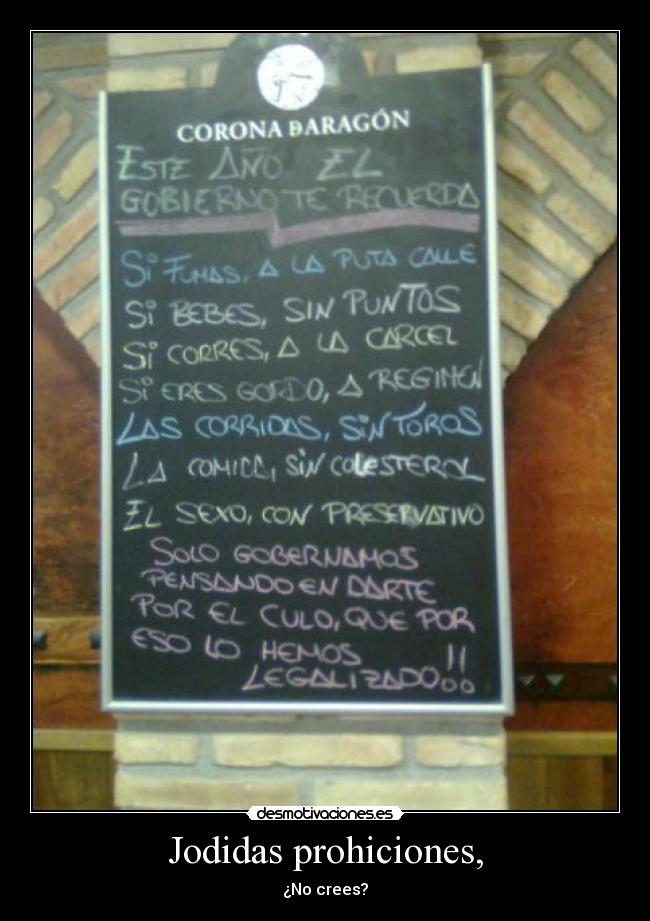 CORONA DARAGÓN
ESTE AÑO EL
GOBIERNO TE RECUERDA
Si FUMAS, A LA PUTA CALLE
Si BEBES, SIN PUNTOS
Si CORRES, A LA CARCEL
Si ERES GORDO, A REGIMEN
LAS CORRIDAS, SiN TOROS
LA COMIDA, SiN COLESTEROL
EL SEXO, CON PRESERVATIVO
SOLO GOBERNAMOS
PENSANDO EN DARTE
POR EL CULO, QUE POR
ESO LO HEMOS
LEGALIZADO!!
desmotivaciones.es
Jodidas prohiciones,
¿No crees?